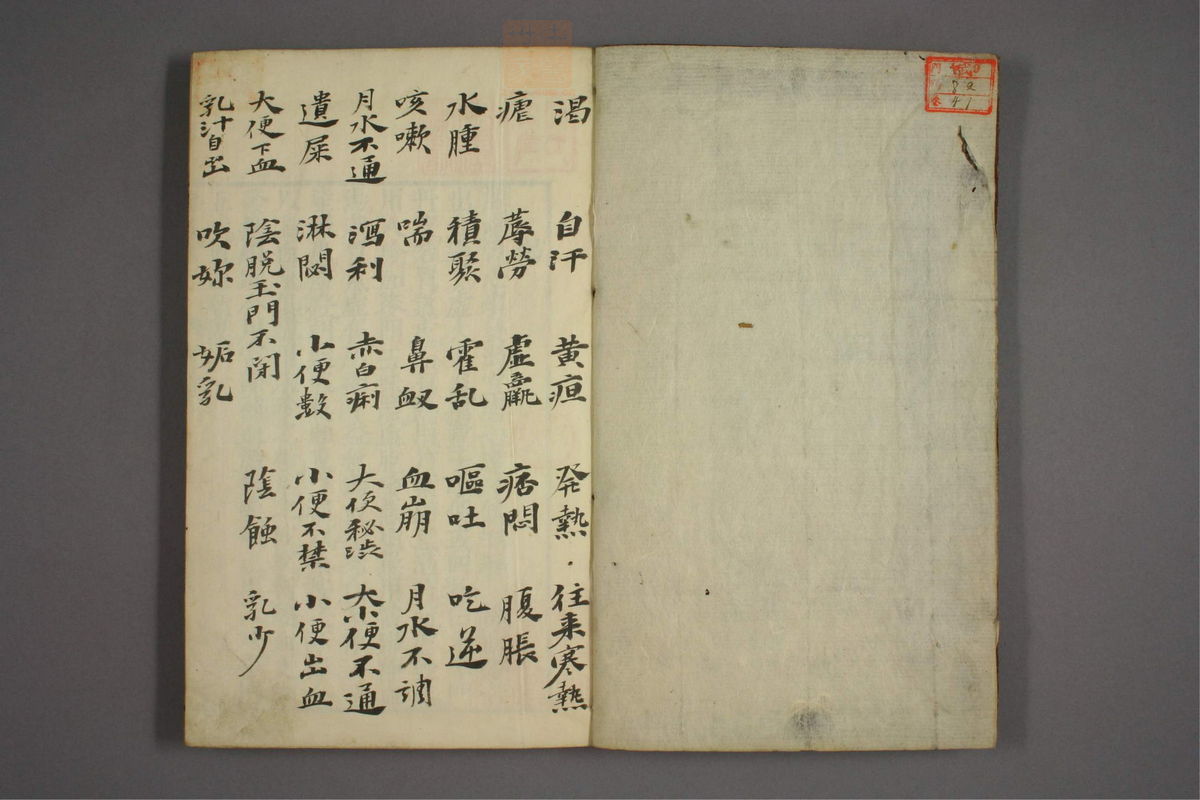 渇 自汗 黄疸 発熱 往来寒熱
瘧 蓐勞 虛羸 痞悶 腹脹
水腫 積聚 霍乱 嘔吐 吃逆
咳嗽 喘 鼻衄 血崩 月水不調
月水不通 瀉利 赤白痢 大便秘渋 大小便不通
遺屎 淋閟 小便數 小便不禁 小便出血
大便下血 陰脱玉門不閉 陰蝕 乳少
乳汁自出 吹妳 妬乳